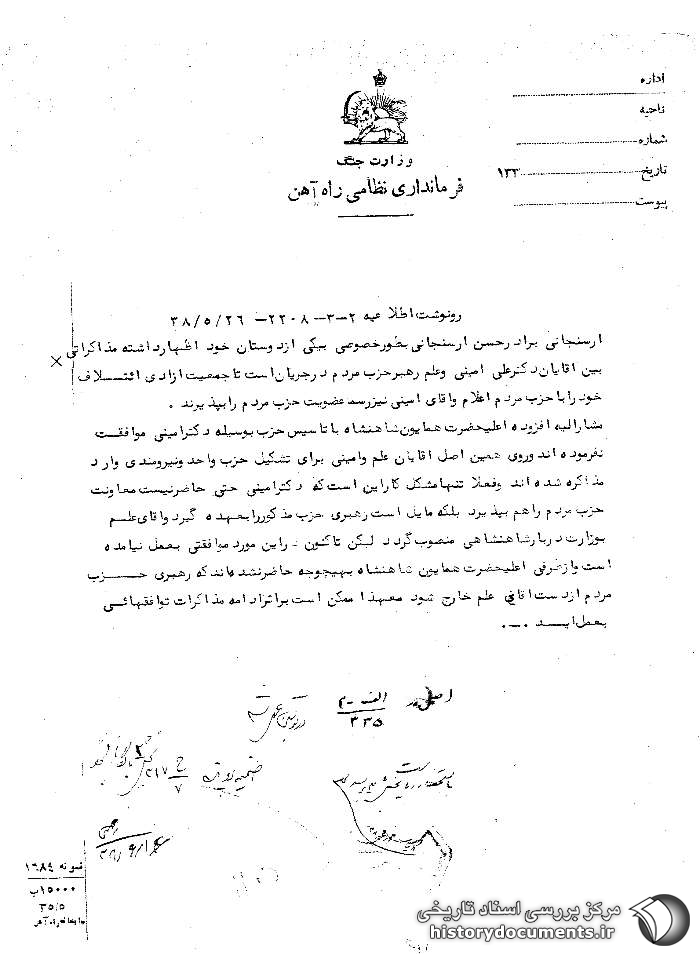 اداره
ناحیه
شماره
تاریخ ۱۳۳
پیوست
وزارت جنگ
فرمانداری نظامی راه آهن
رونوشت اطلاعیه ۲-۳-۲۲۰۸- ۳۸/۵/۲۶
ارسنجانی برادر حسن ارسنجانی بطور خصوصی بیکی ازدوستان خود اظهارداشته مذاکراتی
بین اقایان دکترعلی امینی وعلم رهبر حزب مردم درجریان است تا جمعیت ازادی ائتلاف
خود را با حزب مردم اعلام واقای امینی نیز رسما عضویت حزب مردم را بپذیرند .
مشارالیه افزوده اعلیحضرت همایون شاهنشاه با تاسیس حزب بوسیله دکترامینی موافقت
نفرموده اند وروی همین اصل اقایان علم وامینی برای تشکیل حزب واحد ونیرومندی وارد
مذاکره شده اند وفعلا تنها مشکل کار این است که دکترامینی حتی حاضرنیست معاونت
حزب مردم را هم بپذیرد بلکه مایل است رهبری حزب مذکور رابعهده گیرد واقای علم
بوزارت دربارشاهنشاهی منصوب گردد لیکن تاکنون دراین مورد موافقتی بعمل نیامده
است وازطرفی اعلیحضرت همایون شاهنشاه بهیچوجه حاضرنشده اند که رهبری حزب
مردم ازدست اقای علم خارج شود معهذا ممکن است براثرادامه مذاکرات توافقهائی
بعمل اید .-.
اصل در الف-۲
۳۳۵
ضمیمه
۲۱۷
ح
۷
نمونه ۱۶۸۴
۱۵۰۰۰ب
۳۵/۵
چاپخانه راه آهن
مرکز بررسی اسناد تاریخی
historydocuments.ir